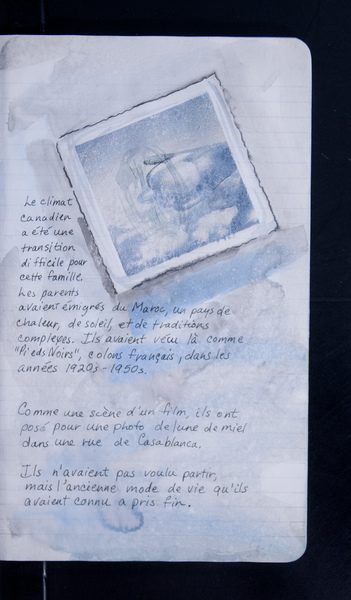 Le climat
canadien
a été une
transition
difficile pour
cette famille.
Les parents
avaient émigrés du Maroc, un pays de
chaleur, de soleil, et de traditions
complexes. Ils avaient vécu là comme
"Pieds Noirs", colons français, dans les
années 1920s-1950s.
Comme une scène d'un film, ils ont
posé pour une photo de lune de miel
dans une rue de Casablanca.
Ils n'avaient pas voulu partir,
mais l'ancienne mode de vie qu'ils
avaient connu a pris fin.